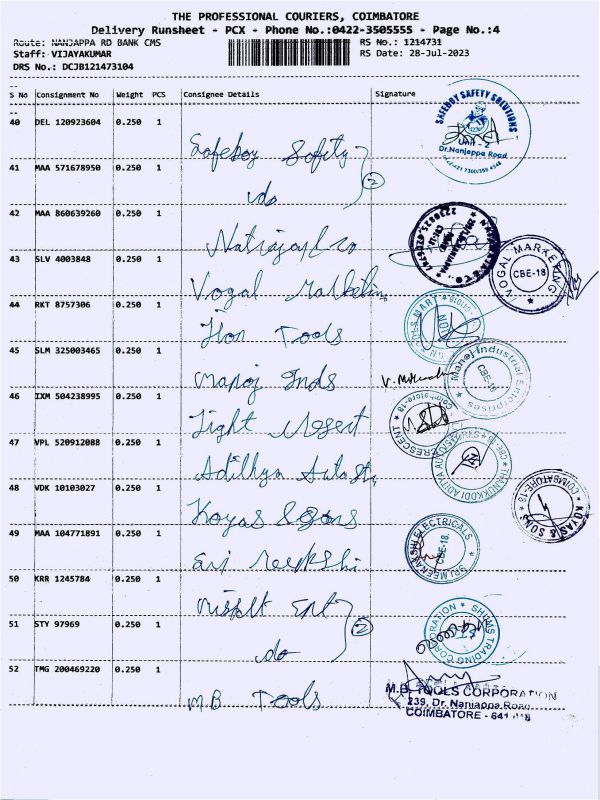 THE PROFESSIONAL COURIERS, COIMBATORE
Delivery Runsheet - PCX - Phone No.:0422-3505555 - Page No.:4
Route: NANJAPPA RD BANK CMS
RS No.: 1214731
Staff: VIJAYAKUMAR
RS Date: 28-Jul-2023
DRS No.: DCJB121473104
S No Consignment No Weight PCS Consignee Details Signature
40 DEL 120923604 0.250 1
SAFEBOY SAFETY SOLUTIONS
Unit - 2
Dr.Nanjappa Road
Safeboy Safity
41 MAA 571678950 0.250 1
do
2
42 MAA 860639260 0.250 1
43 SLV 4003848 0.250 1
VOGAL MARKETING
CBE-18
Vogal Marketing
44 RKT 8757306 0.250 1
Tools
45 SLM 325003465 0.250 1
Manoj Industrial Enterprises
CBE-18
Manoj Inds
46 IXM 504238995 0.250 1
CRESCENT
Coimbatore-18
Light
47 VPL 520912088 0.250 1
THANIKKODI ADITYA AUTO STORES
Adithya Auto
48 VDK 10103027 0.250 1
KOYAS & SONS
COIMBATORE-18
Koyas & Sons
49 MAA 104771891 0.250 1
SRI MEENAKSHI ELECTRICALS
CBE-18
Sri
50 KRR 1245784 0.250 1
Ent
51 STY 97969 0.250 1
SHIMS TRADING CORPORATION
do
2
52 TMG 200469220 0.250 1
M.B. TOOLS CORPORATION
239, Dr. Nanjappa Road
COIMBATORE - 641 018
M.B Tools